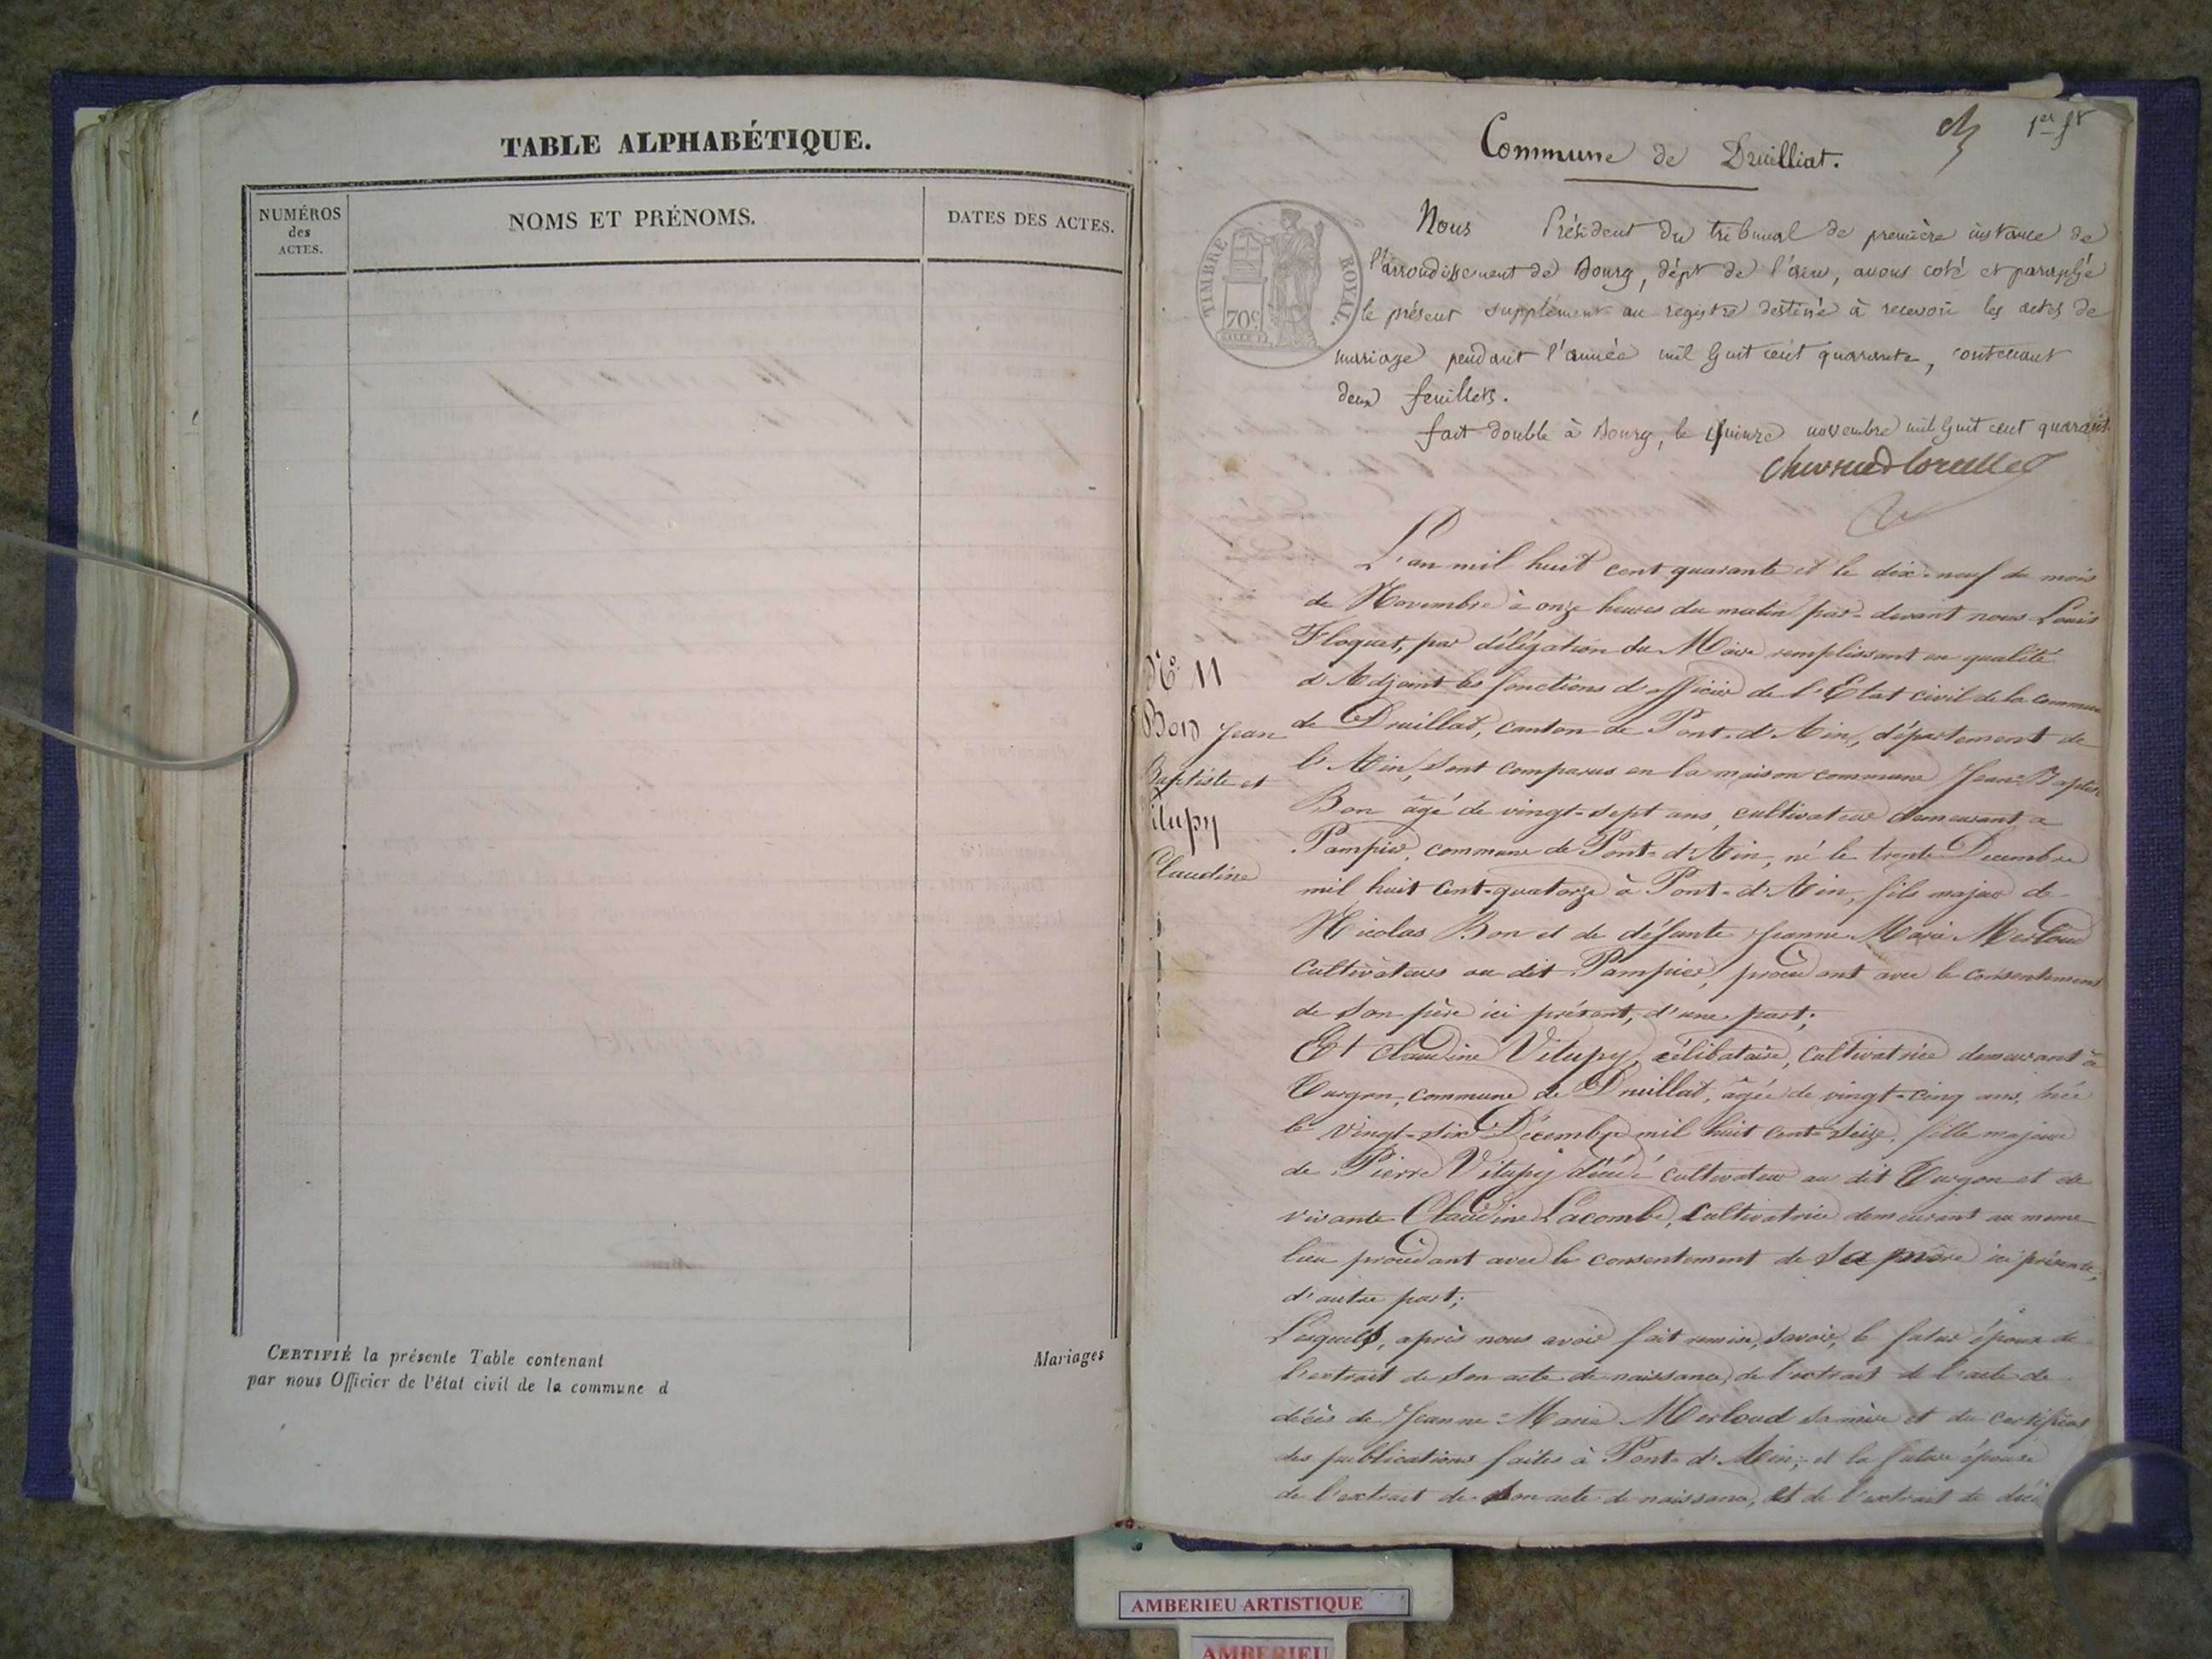 TABLE ALPHABÉTIQUE.
NUMÉROS
des
ACTES.
NOMS ET PRÉNOMS.
DATES DES ACTES.
CERTIFIÉ la présente Table contenant
Mariages
par nous Officier de l'état civil de la commune d
1er ft
Commune de Druilliat.
TIMBRE ROYAL.
70c
Nous Président du tribunal de première instance de
l'arrondissement de Bourg, dépt de l'ain, avons coté et paraphé
le présent supplément au registre destiné à recevoir les actes de
mariage pendant l'année mil huit cent quarante, contenant
deux feuillets.
fait double à Bourg, le quinze novembre mil huit cent quarante
L'an mil huit cent quarante et le dix-neuf du mois
de Novembre à onze heures du matin par-devant nous Louis
Floquet, par délégation du Maire remplissant en qualité
d'Adjoint les fonctions d'officier de l'Etat civil de la commune
de Druillat, canton de Pont-d'Ain, département de
l'Ain, sont comparus en la maison commune Jean-Baptiste
Bon âgé de vingt-sept ans, cultivateur demeurant a
Pampier, commune de Pont-d'Ain, né le trente Decembre
mil huit cent-quatorze à Pont-d'Ain, fils majeur de
Nicolas Bon et de défunte Jeanne Marie Merloud
cultivateurs au dit Pampier, procédant avec le consentement
de son père ici présent, d'une part;
Et Claudine Vitupy, célibataire, cultivatrice demeurant à
Turgon, commune de Druillat, âgée de vingt-cinq ans, née
le vingt-six Décembre mil huit cent-seize, fille majeure
de Pierre Vitupy décédé cultivateur au dit Turgon et de
vivante Claudine Lacombe, cultivatrice demeurant au meme
lieu procédant avec le consentement de sa mère ici présente,
d'autre part;
Lesquels, après nous avoir fait remise, savoir, le futur époux de
l'extrait de son acte de naissance, de l'extrait de l'acte de
décès de Jeanne-Marie Merloud sa mère et du certificat
des publications faites à Pont-d'Ain; et la future épouse
de l'extrait de son acte de naissance, et de l'extrait de décès
No 11
Bon Jean
Baptiste et
Vitupy
Claudine
AMBERIEU ARTISTIQUE
AMBERIEU